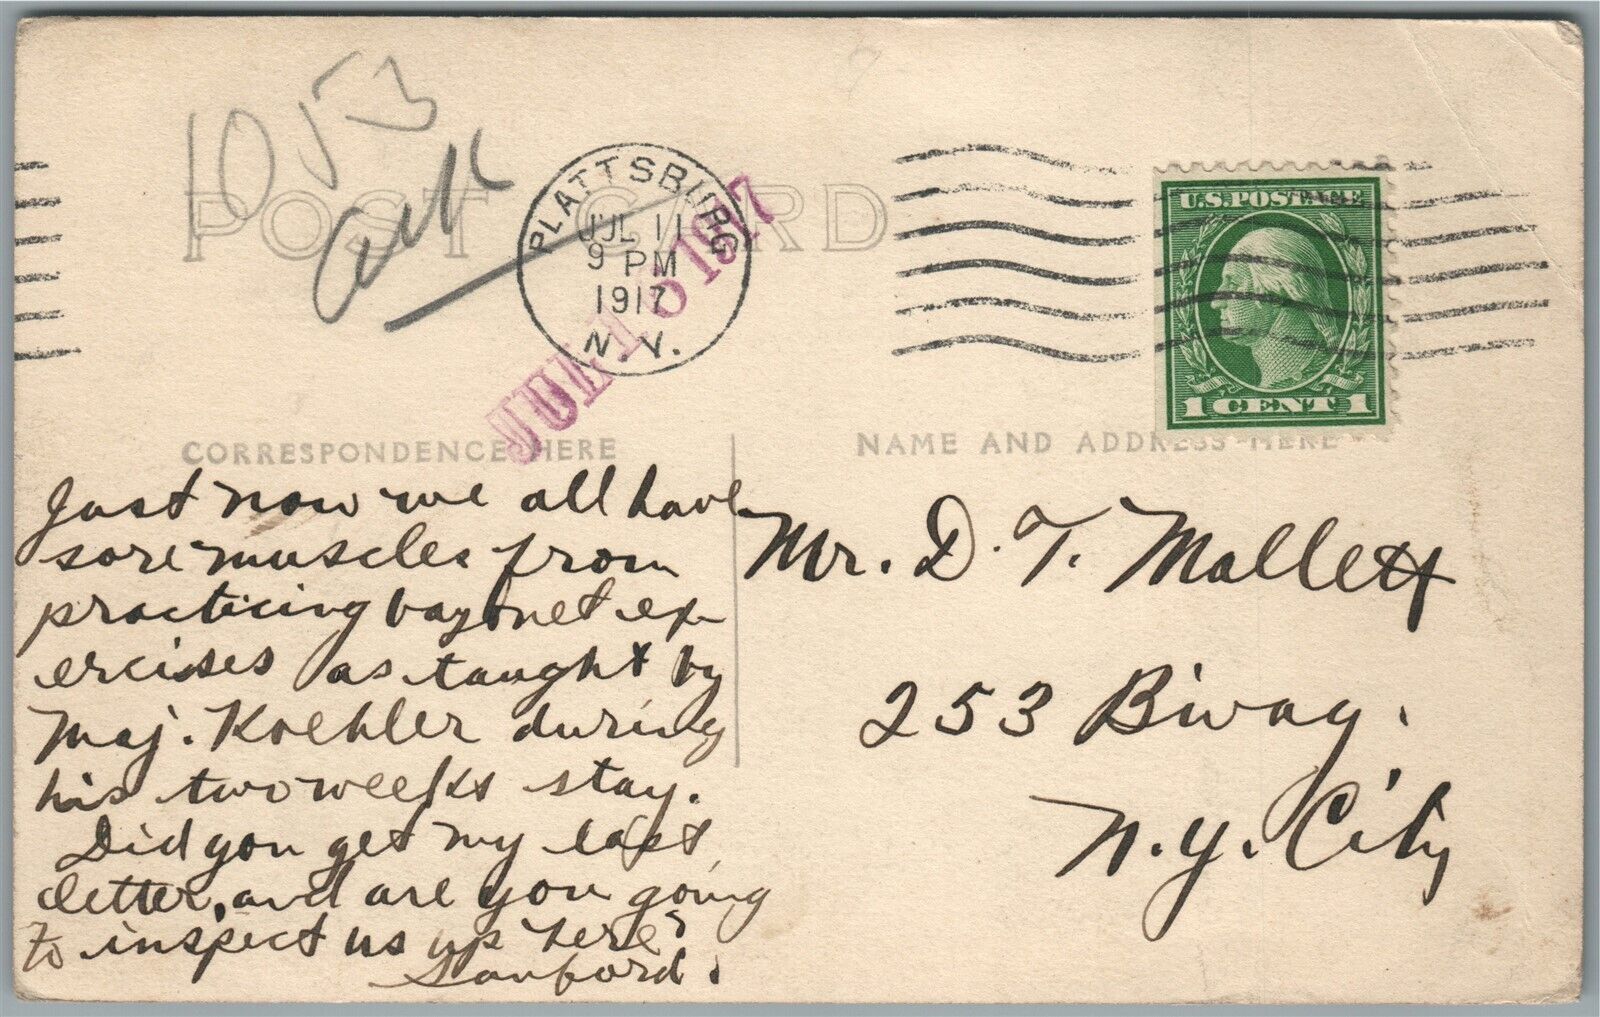 POST CARD
PLATTSBURG
JUL 11
9 PM
1917
N.Y.
JUL 1 1917
U.S. POSTAGE
1 CENT 1
CORRESPONDENCE HERE
NAME AND ADDRESS HERE
Just now we all have
sore muscles from
practicing bayonet ex-
ercises as taught by
Maj. Koehler during
his two weeks stay.
Did you get my last
letter, and are you going
to inspect us up here?
Sanford.
Mr. D. T. Mallett
253 B'way.
N.Y. City